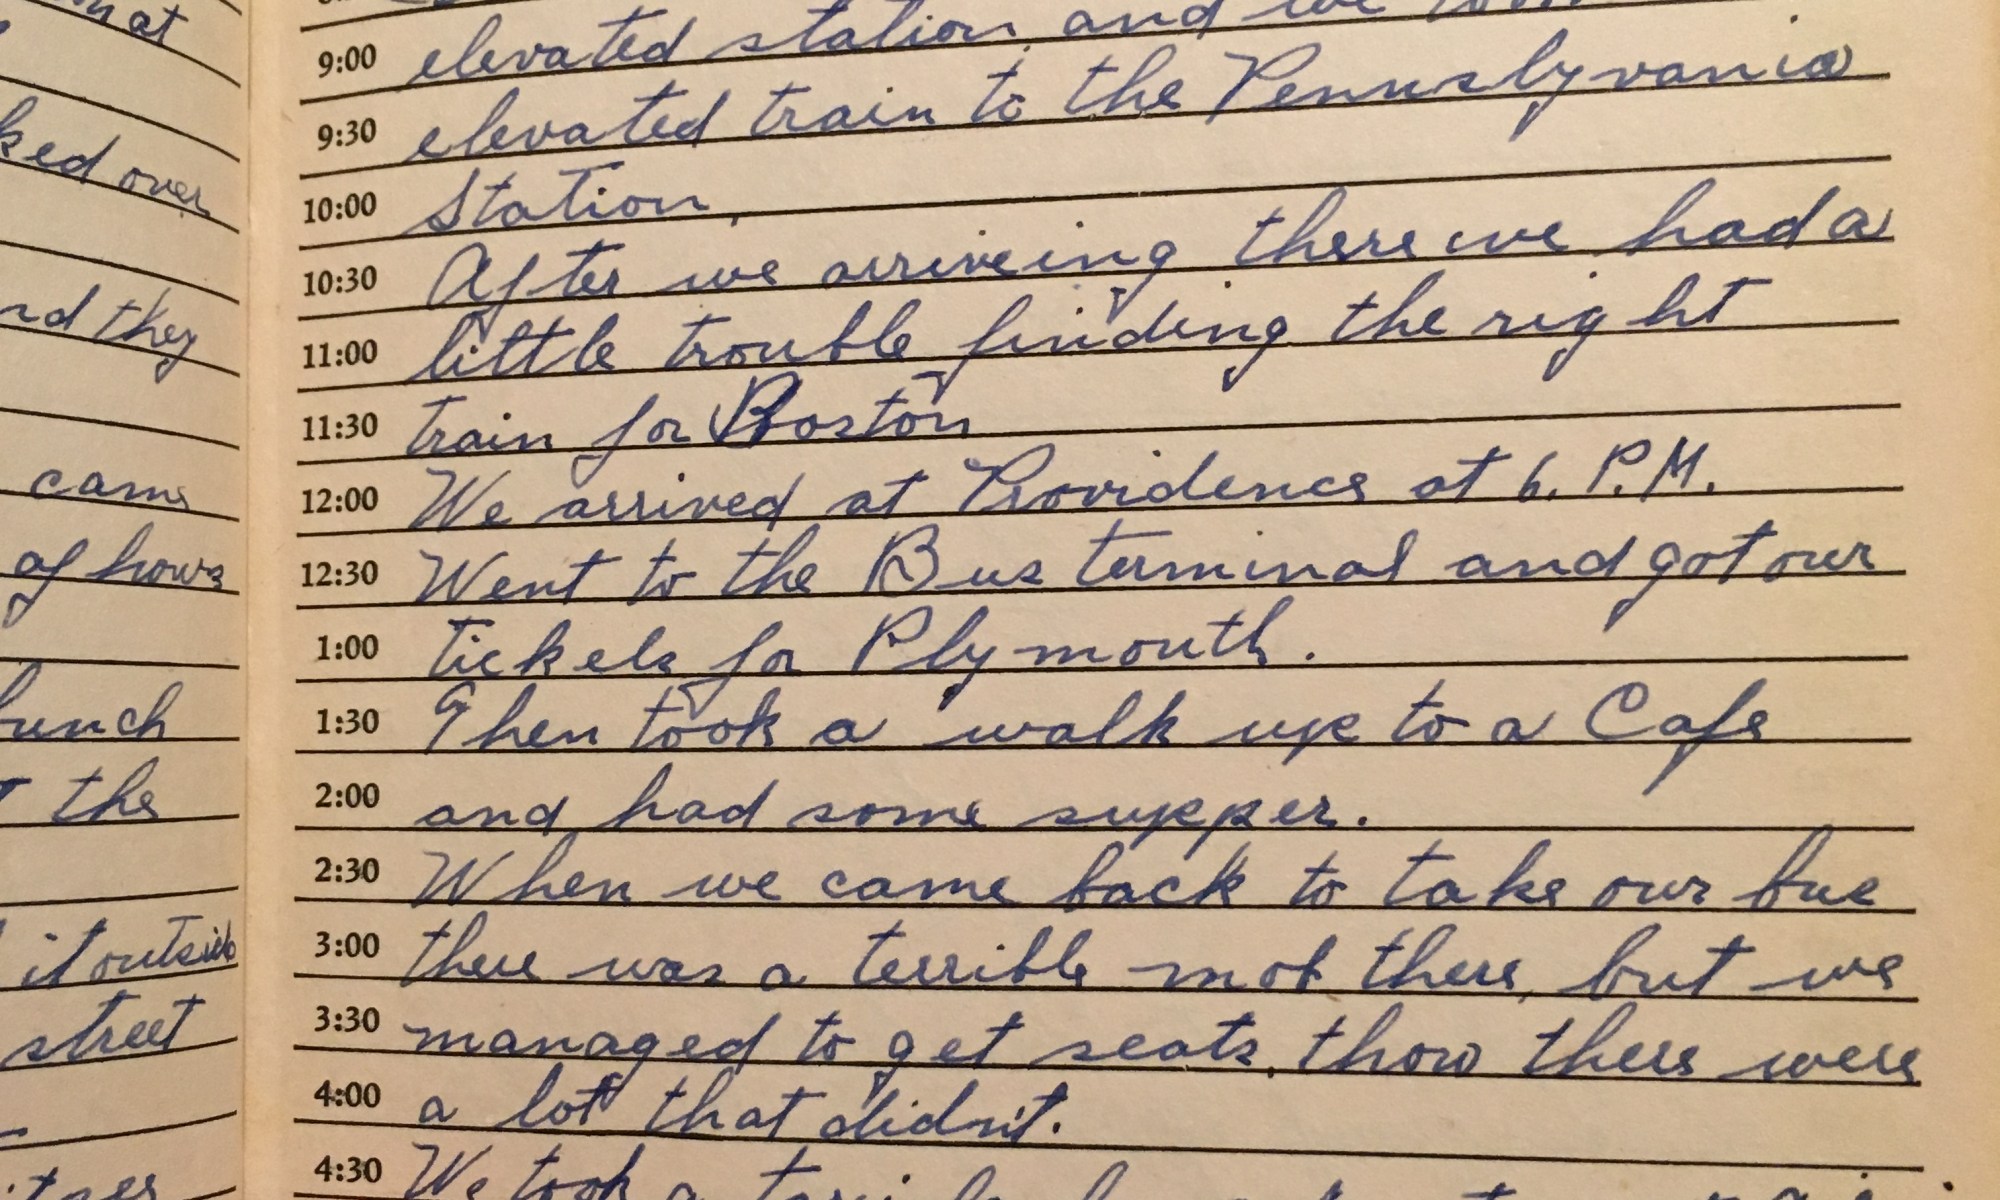 at
ked over
nd they
came
of hours
lunch
the
it outside
street
9:00 elevated station, and we
9:30 elevated train to the Pennslyvania
10:00 Station,
10:30 After we arriveing there we had a
11:00 little trouble finding the right
11:30 train for Boston
12:00 We arrived at Providence at 6. P.M.
12:30 Went to the Bus terminal and got our
1:00 tickets for Plymouth.
1:30 Then took a walk up to a Cafe
2:00 and had some supper.
2:30 When we came back to take our bus
3:00 there was a terrible mob there, but we
3:30 managed to get seats, thow there were
4:00 a lot that didn't.
4:30 We took a